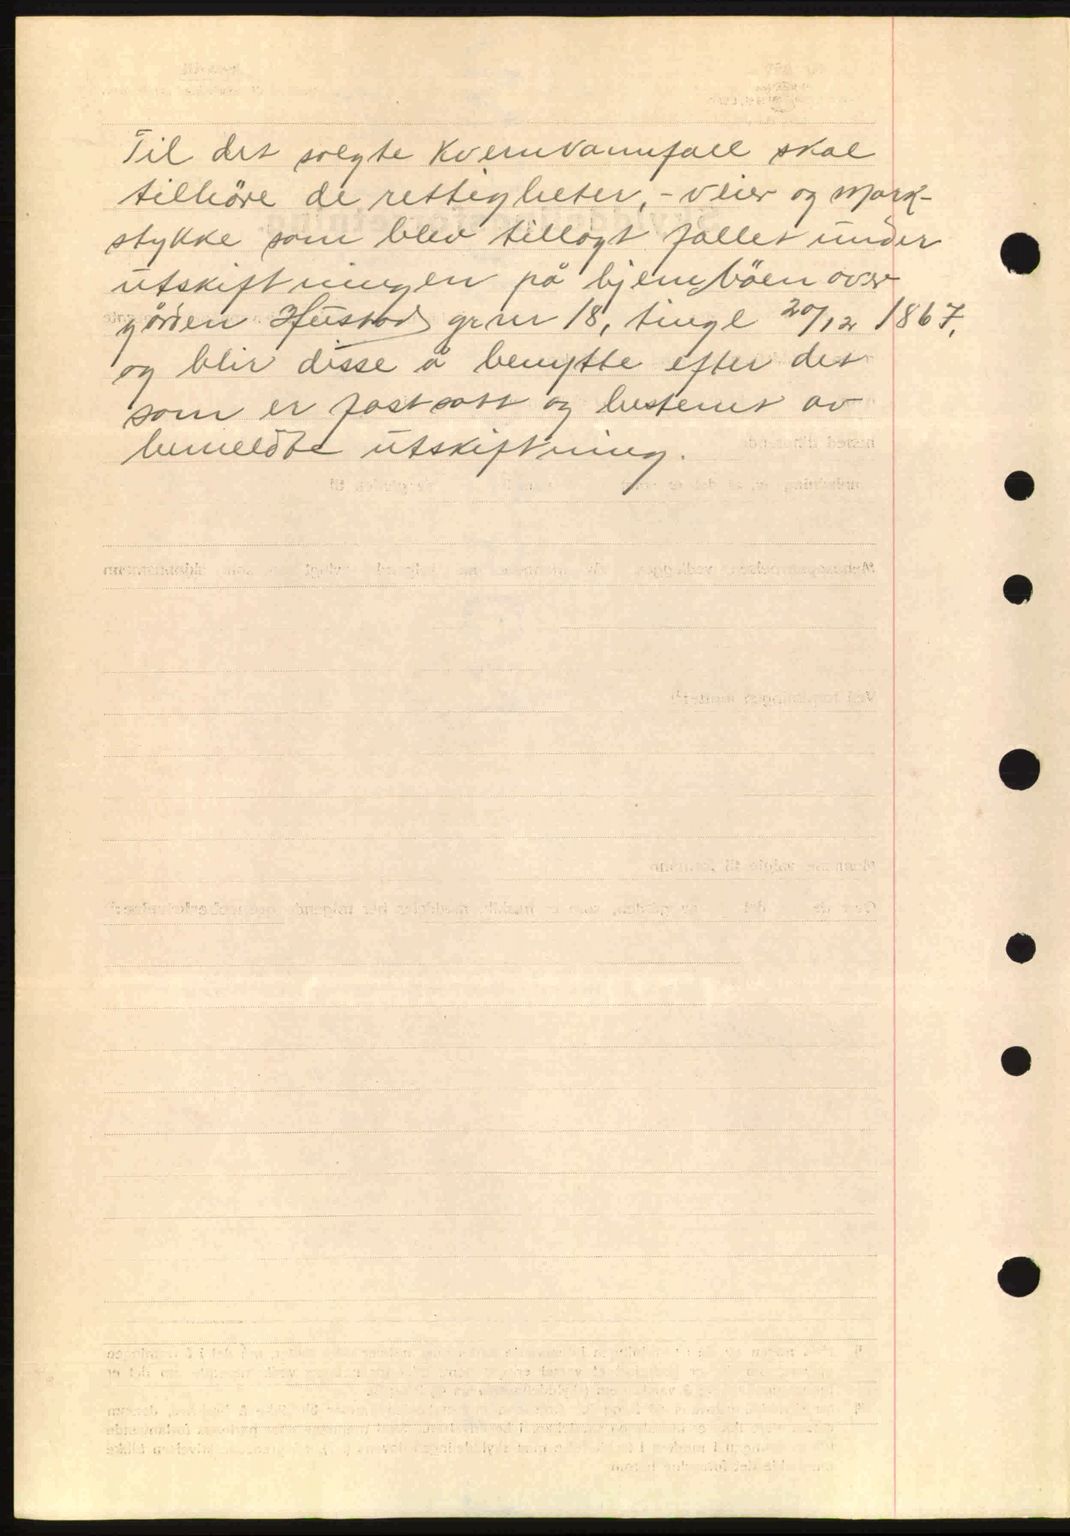 Til det solgte Kvernvannfall skal
tilhöre de rettigheter, - veier og mark-
stykke som blev tillagt fallet under
utskiftningen på hjemböen over
gården Hustad grnr 18, tingl 20/12 1867,
og blir disse å benytte efter det
som er fastsatt og bestemt av
bemeldte utskiftning.